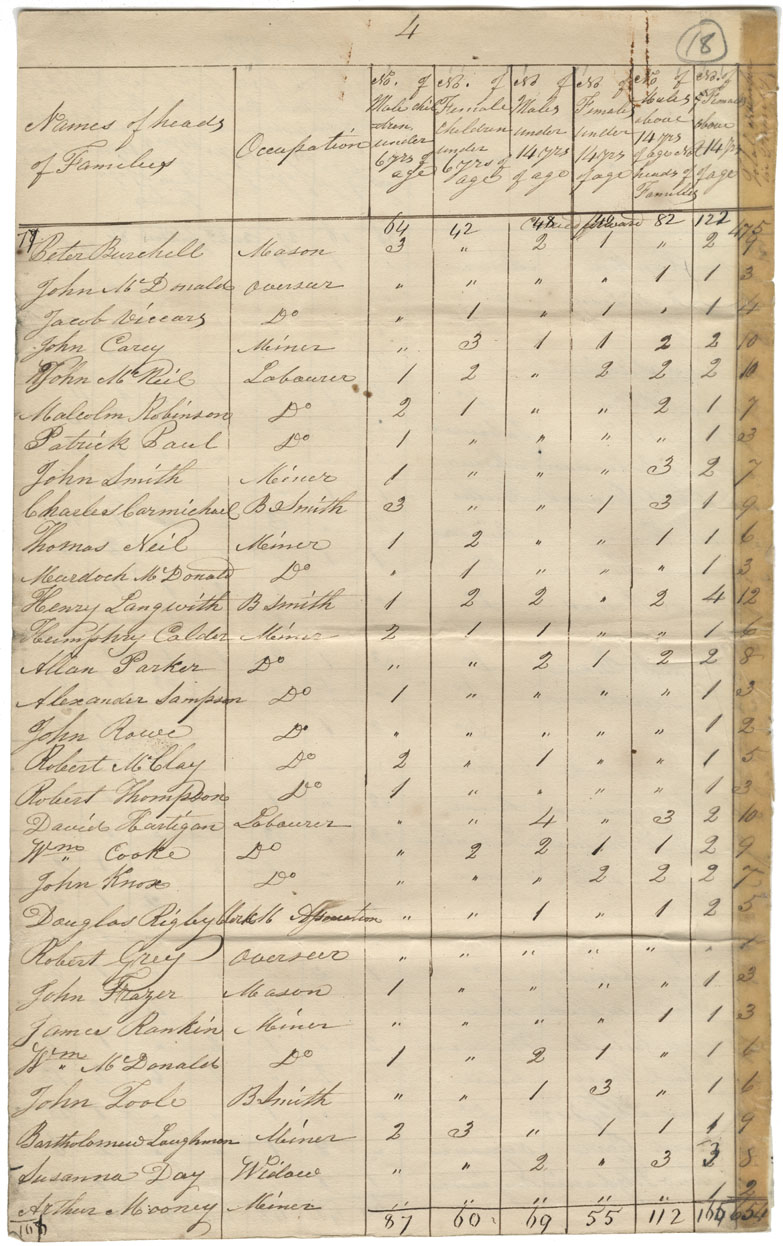 4
18
Names of heads of Families | Occupation | No. of Male children under 6 yrs of age | No. of Female children under 6 yrs of age | No of Males under 14 yrs of age | No of Females under 14 yrs of age | No of Males above 14 yrs of age not heads of Families | No. of Females above 14 yrs of age
64 42 48 44 Carried forward 82 122 475
Peter Burchell Mason 3 " 2 1 " 2 9
John McDonald Overseer " " " " 1 1 3
Jacob Viccars Do " 1 " 1 " 1 4
John Carey Miner " 3 1 1 2 2 10
John McNeil Labourer 1 2 " 2 2 2 10
Malcolm Robinson Do 2 1 " " 2 1 7
Patrick Paul Do 1 " " " " 1 3
John Smith Miner 1 " " " 3 2 7
Charles Carmichael B Smith 3 " " 1 3 1 9
Thomas Neil Miner 1 2 " " 1 1 6
Murdoch McDonald Do " 1 " " " 1 3
Henry Langwith B Smith 1 2 2 " 2 4 12
Humphry Calder Miner 2 1 1 " " 1 6
Allan Parker Do " " 2 1 2 2 8
Alexander Sampson Do 1 " " " " 1 3
John Rowe Do " " " " " 1 2
Robert McClay Do 2 " 1 " " 1 5
Robert Thompson Do 1 " " " " 1 3
David Hartigan Labourer " " 4 " 3 2 10
Wm Cooke Do " 2 2 1 1 2 9
John Knox Do " " " 2 2 2 7
Douglas Rigby Clerk M Association " " 1 " 1 2 5
Robert Grey Overseer " " " " " " 1
John Frazer Mason 1 " " " " 1 3
James Rankin Miner " " " " 1 1 3
Wm McDonald Do 1 " 2 1 " 1 6
John Toole B Smith " " 1 3 " 1 6
Bartholomew Laughman Miner 2 3 " 1 1 1 9
Susanna Day Widow " " 2 " 3 3 8
Arthur Mooney Miner " " " " " 1 2
108 87 60 69 55 112 165 654